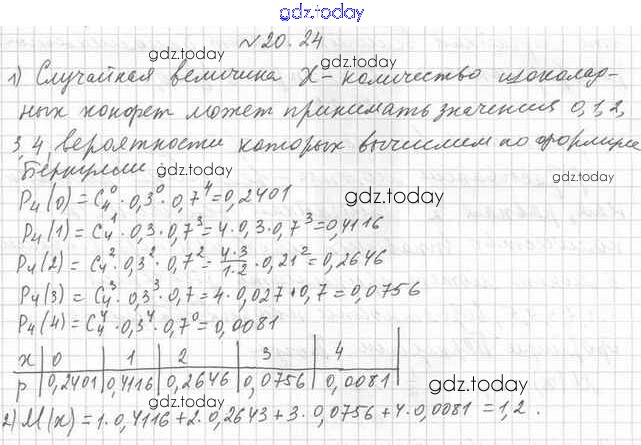 gdz.today
№20.24
gdz.today
1) Случайная величина X - количество шоколад-
ных конфет может принимать значения 0,1,2,
3,4, вероятности которых вычислим по формуле
Бернулли gdz.today
P₄(0) = C₄⁰ · 0,3⁰ · 0,7⁴ = 0,2401 gdz.today
P₄(1) = C₄¹ · 0,3 · 0,7³ = 4 · 0,3 · 0,7³ = 0,4116
P₄(2) = C₄² · 0,3² · 0,7² = (4·3)/(1·2) · 0,21² = 0,2646
gdz.today
P₄(3) = C₄³ · 0,3³ · 0,7 = 4 · 0,027 + 0,7 = 0,0756
gdz.today
P₄(4) = C₄⁴ · 0,3⁴ · 0,7⁰ = 0,0081
x | 0 | 1 | 2 | 3 | 4
p | 0,2401 | 0,4116 | 0,2646 | 0,0756 | 0,0081 |
gdz.today gdz.today
2) M(x) = 1 · 0,4116 + 2 · 0,2643 + 3 · 0,0756 + 4 · 0,0081 = 1,2.
gdz.today